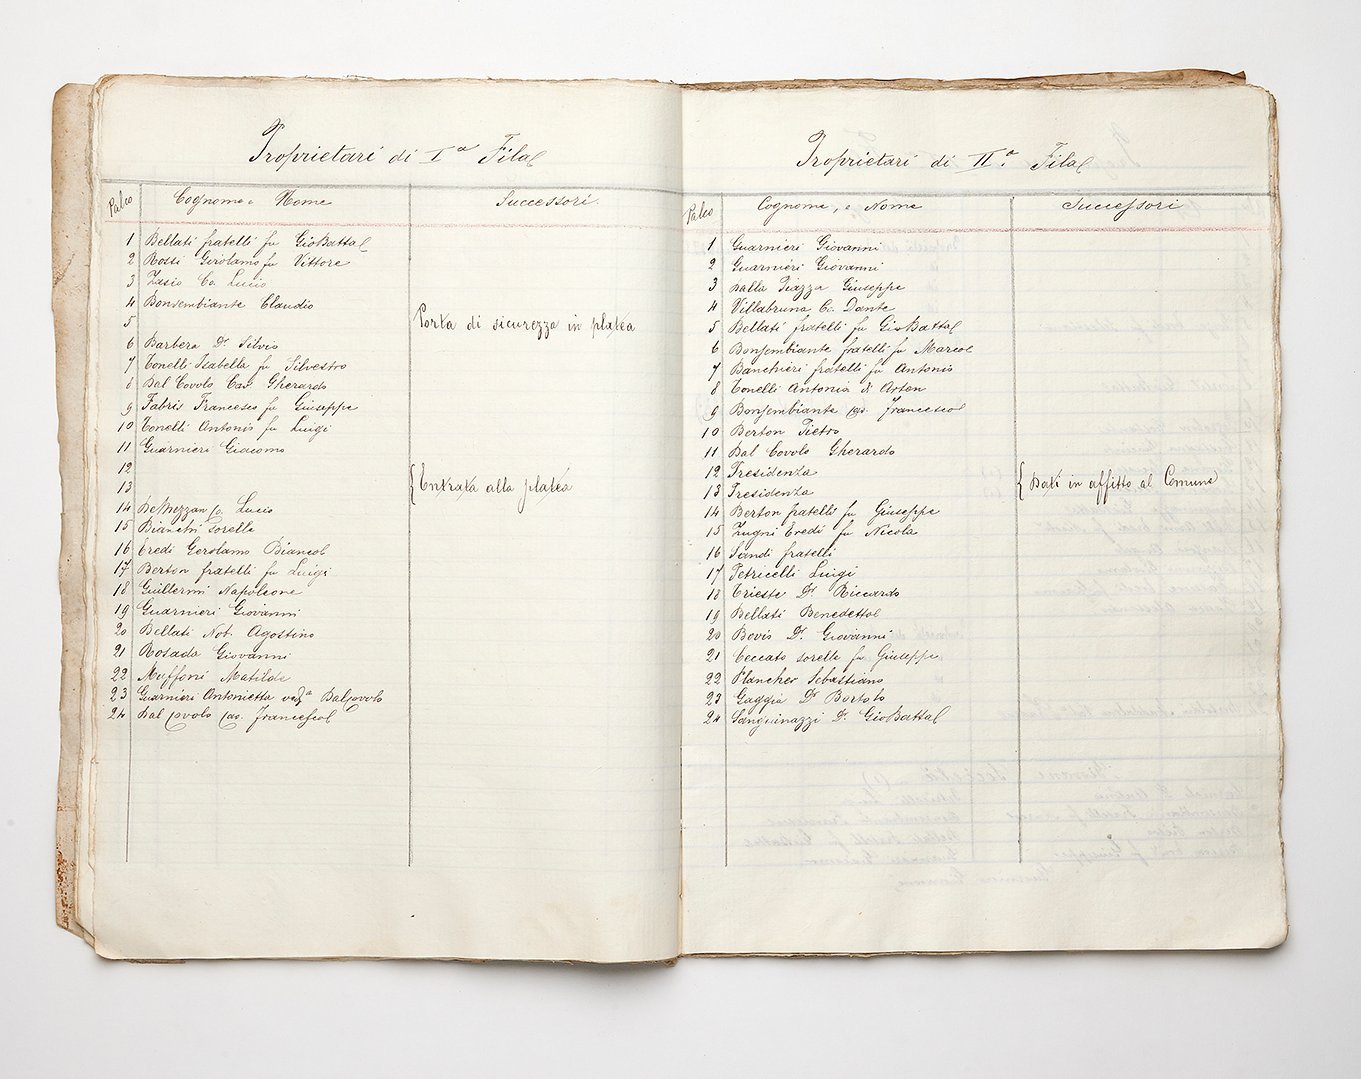 Proprietari di I.a Fila
Palco Cognome e Nome Successori
1 Bellati fratelli fu GioBatta
2 Rossi Girolamo fu Vittore
3 Zasio Co. Lucio
4 Bonsembiante Claudio
5 Porta di sicurezza in platea
6 Barbera Dr Silvio
7 Tonelli Isabella fu Silvestro
8 Dal Covolo Cav Gherardo
9 Fabris Francesco fu Giuseppe
10 Tonelli Antonio fu Luigi
11 Guarnieri Giacomo
12
13 { Entrata alla platea
14 De Mezzan Co. Lucio
15 Bianchi sorelle
16 Eredi Gerolamo Bianco
17 Berton fratelli fu Luigi
18 Guillermi Napoleone
19 Guarnieri Giovanni
20 Bellati Nob. Agostino
21 Rosada Giovanni
22 Muffoni Matilde
23 Guarnieri Antonietta ved.a Dal Covolo
24 Dal Covolo Cav. Francesco
Proprietari di II.a Fila
Palco Cognome, e Nome Successori
1 Guarnieri Giovanni
2 Guarnieri Giovanni
3 Dalla Piazza Giuseppe
4 Villabruna Co. Dante
5 Bellati fratelli fu GioBatta
6 Bonsembiante fratelli fu Marco
7 Banchieri fratelli fu Antonio
8 Tonelli Antonia di Arten
9 Bonsembiante Cav. Francesco
10 Berton Pietro
11 Dal Covolo Gherardo
12 Presidenza
13 Presidenza { Dati in affitto al Comune
14 Berton fratelli fu Giuseppe
15 Zugni Eredi fu Nicola
16 Sandi fratelli
17 Petricelli Luigi
18 Trieste Dr Riccardo
19 Bellati Benedetto
20 Bovio Dr. Giovanni
21 Ceccato sorelle fu Giuseppe
22 Plancher Sebastiano
23 Gaggia Dr Bortolo
24 Sanguinazzi Dr GioBatta